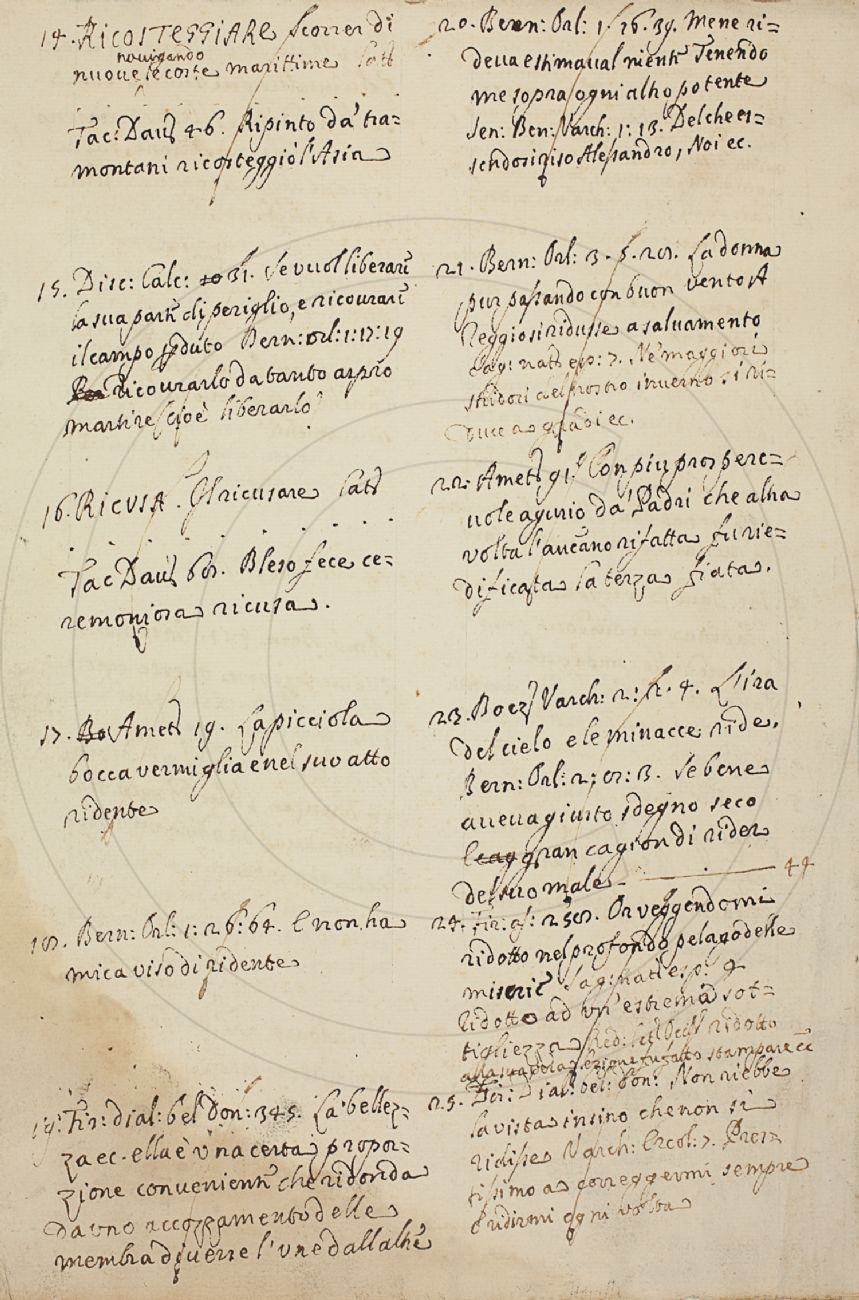 14. RICOSTEGGIARE scorrer di
navigando
nuovo le coste marittime Latt
Tac: Dav: 46. Ripinto da' tra=
montani ricosteggiò l'Asia
15. Disc: Calc: 31. Se vuol liberare
la sua parte di periglio, e ricourare
il campo pduto Bern: Orl: 1: 17: 19
ricourarlo da tanto aspro
martire cioè liberarlo
16. RICUSA. Il ricusare Lat
Tac Dav: 68. Bleso fece ce=
remoniosa ricusa.
17. Amet 19. La picciola
bocca vermiglia e nel suo atto
ridente
18. Bern: Orl: 1: 26: 64. E non ha
mica viso di ridente
19. Fir: dial: bel: don: 345. La bellez=
za ec. ella è una certa propor=
zione conveniente che ridonda
da uno accozzamento delle
membra diverse l'une dall'altre
20. Bern: Orl: 1. 26. 39. Me ne ri=
deva e stimaval niente Tenendo
me sopra ogni altro potente
Sen: Ben: Varch: 1: 13. Del che es=
sendosi riso Alessandro, Noi ec.
21. Bern: Orl: 3. La donna
pur passando con buon vento A
Reggio si ridusse a salvamento
Sag: nat: esp: 7. Nè maggiori
stridori del nostro inverno si ri=
duce a gradi ec.
22. Amet 91. Con più prospere=
vole agurio da' Padri che altra
volta l'aveano rifatta fu rie=
dificata la terza fiata.
23. Boez Varch: 2: 4. L'ira
del cielo e le minacce ride.
Bern: Orl: 2: 3. Se bene
aveva giusto sdegno seco
gran cagion di rider
del suo male 44
24. Fir: 258. Or veggendomi
ridotto nel profondo pelago delle
miserie Sag: nat: esp: 9
Ridotto ad un' estrema sot=
tigliezza Red: ridotto
alla sua fatto stampare ec
25. Fir: dial: bel: don: Non riebbe
la vista insino che non si
ridisse Varch: Ercol: 7. Pres=
tissimo a correggermi sempre
e ridirmi ogni volta